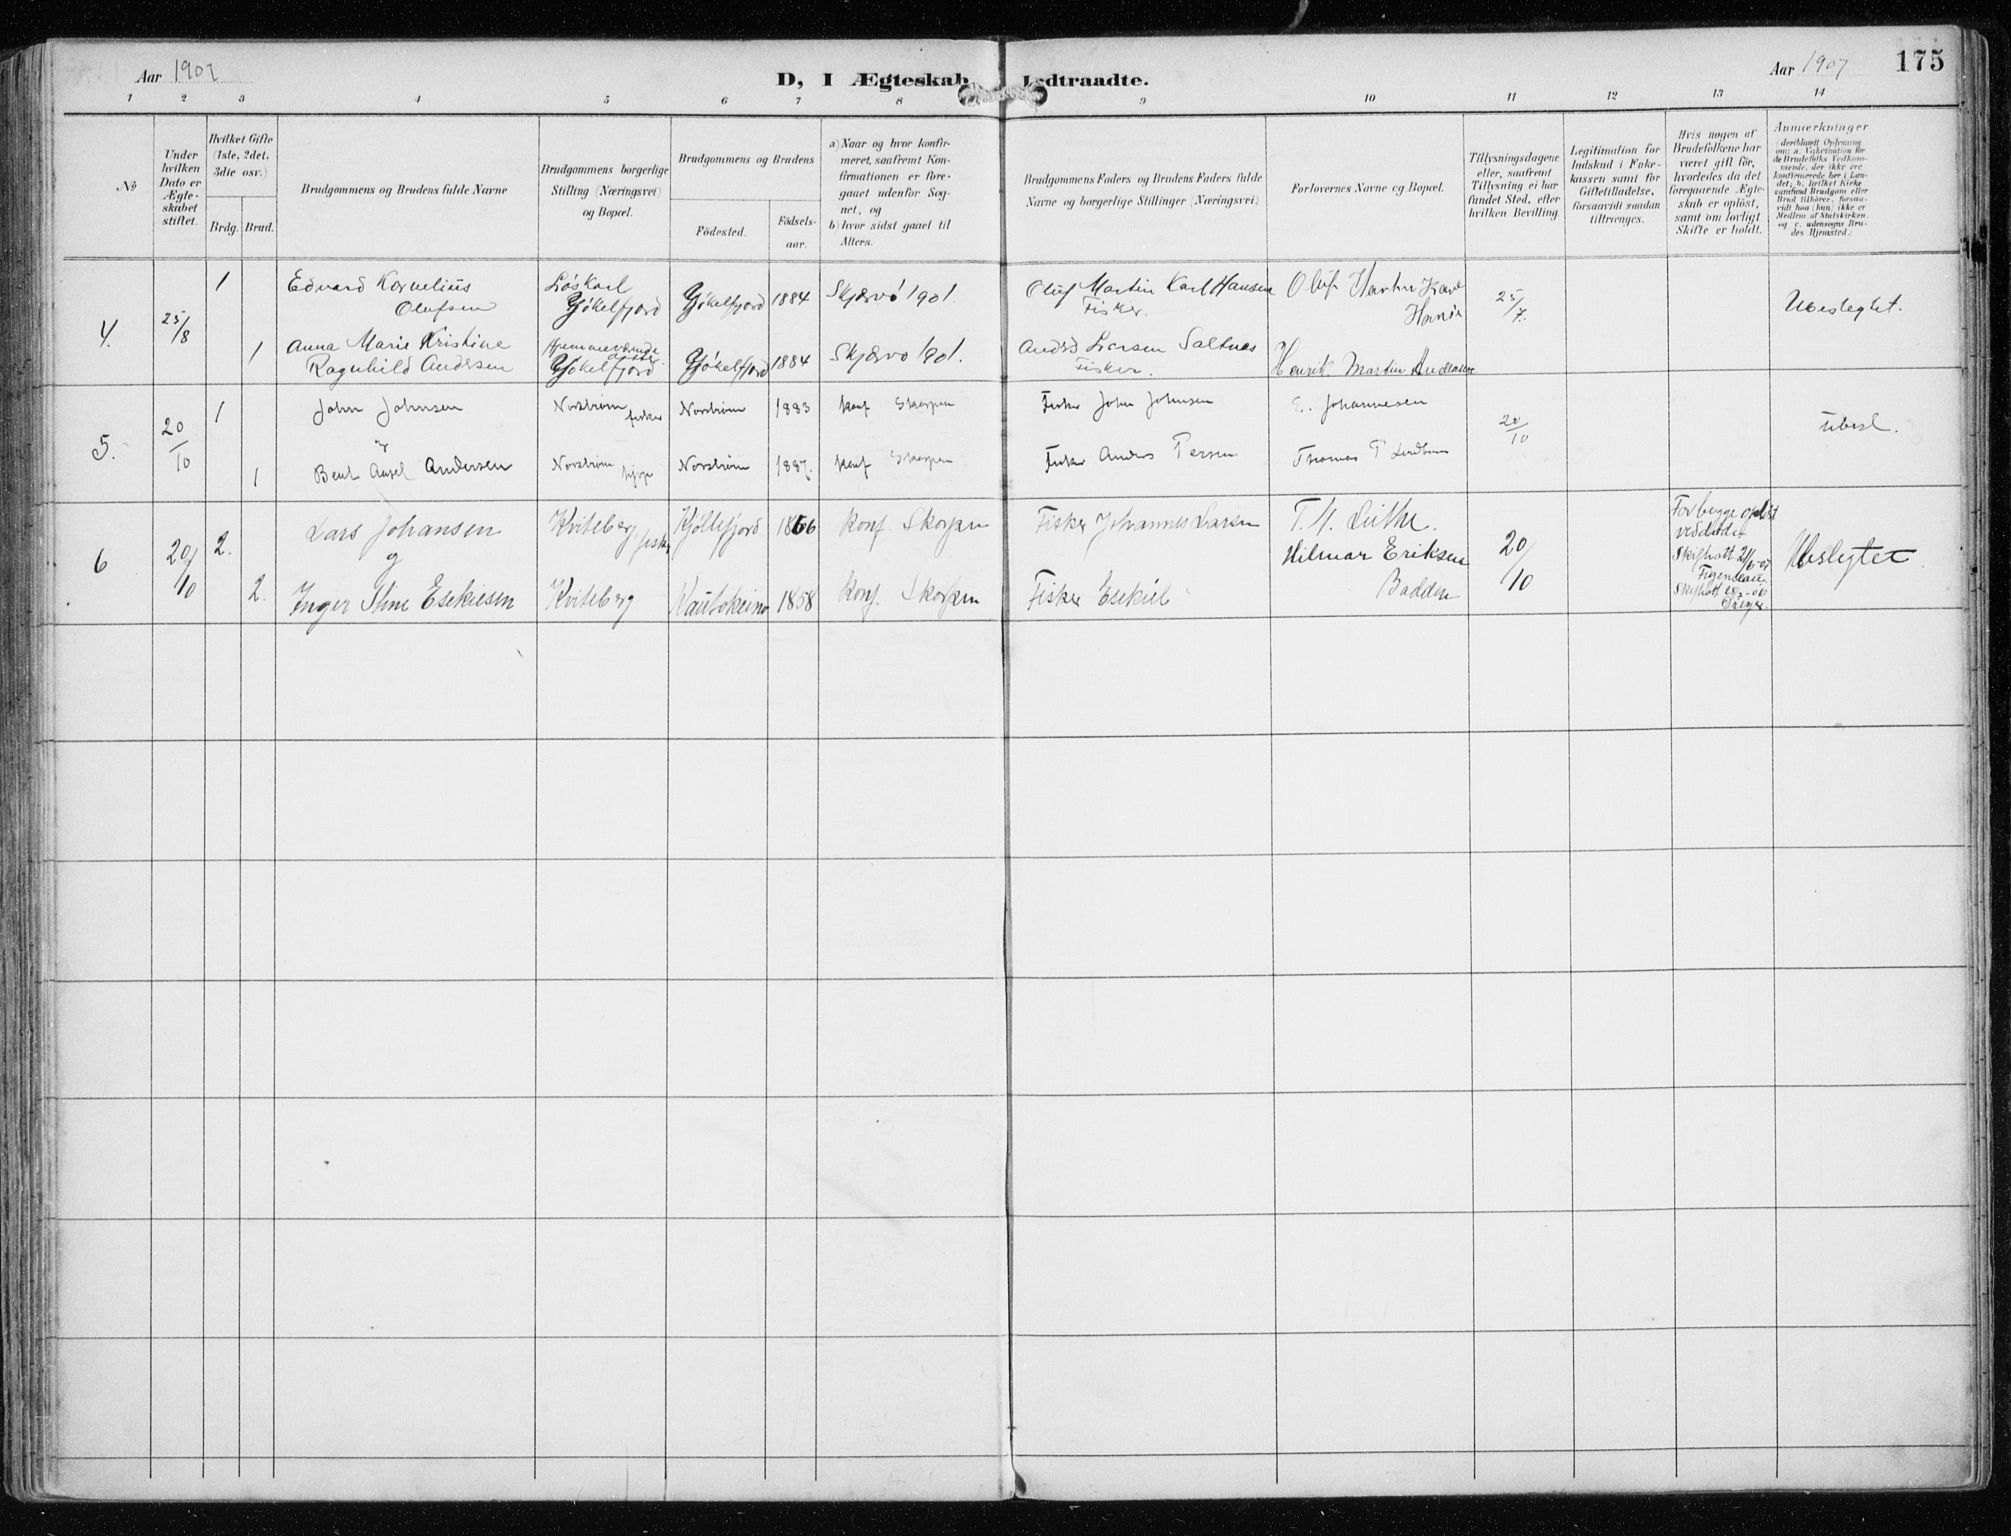 Aar 1907
D, I Ægteskab Indtraadte.
Aar 1907
175
1 2 3 4 5 6 7 8 9 10 11 12 13 14
No
Under
hvilken
Dato er
Ægte-
skabet
stiftet.
Hvilket Gifte
(1ste, 2det,
3die osv.)
Brdg. Brud.
Brudgommens og Brudens fulde Navne
Brudgommens borgerlige
Stilling (Næringsvei)
og Bopæl.
Brudgommens og Brudens
Födested.
Födsels-
aar.
a) Naar og hvor konfir-
meret, saafremt Kon-
firmationen er fore-
gaaet udenfor Sog-
net, og
b) hvor sidst gaaet til
Alters.
Brudgommens Faders og Brudens Faders fulde
Navne og borgerlige Stillinger (Næringsvei)
Forlovernes Navne og Bopæl.
Tillysningsdagene
eller, saafremt
Tillysning ei har
fundet Sted, efter
hvilken Bevilling.
Legitimation for
Indskud i Enke-
kassen samt for
Giftetilladelse,
forsaavidt saadan
tiltrænges.
Hvis nogen af
Brudefolkene har
været gift för,
hvorledes da det
foregaaende Ægte-
skab er oplöst,
samt om lovligt
Skifte er holdt.
Anmærkninger
(deriblandt Oplysning
om: a. Vakcination for
de Brudefolks Vedkom-
mende, der ikke ere
konfirmerede her i Lan-
det; b. hvilket Kirke-
samfund Brudgom eller
Brud tilhörer, forsaa-
vidt han (hun) ikke er
Medlem af Statskirken,
og c. udensogns Bru-
des Hjemsted.)
4. 25/8 1 Edvard Kornelius
Olufsen
Löskarl
Jökelfjord Jökelfjord 1884 Skjærvö 1901.
Oluf Martin Karl Hansen
Fisker.
Oluf Martin Karl
Hansen
25/7.
Ubeslegtet.
1 Anna Marie Kristine
Ragnhild Andersen
Hjemmeværende
Jökelfjord Jökelfjord 1884 Skjærvö 1901.
Anders Larsen Saltnes
Fisker.
Henrik Martin Andersen
5. 20/10 1 John Johnsen Norstrøm fisker Norstrøm 1883 konf Skorpen
Fisker John Johnsen
E. Johannesen
20/10
ubesl.
og
1 Andersen Norstrøm Norstrøm 1887. konf Skorpen
Fisker Anders Persen
Thomas P
6 20/10 2. Lars Johansen Kviteberg fisker Kjöllefjord 1866 konf. Skorpen
Fisker Johannes Larsen
Hilmar Eriksen
Badderen
20/10
For begge opløst
ved døden
Ubeslegtet
og
2. Inger Stine Esekiesen Kviteberg Kautokeino 1858 konf. Skorpen
Fisker Esekiel